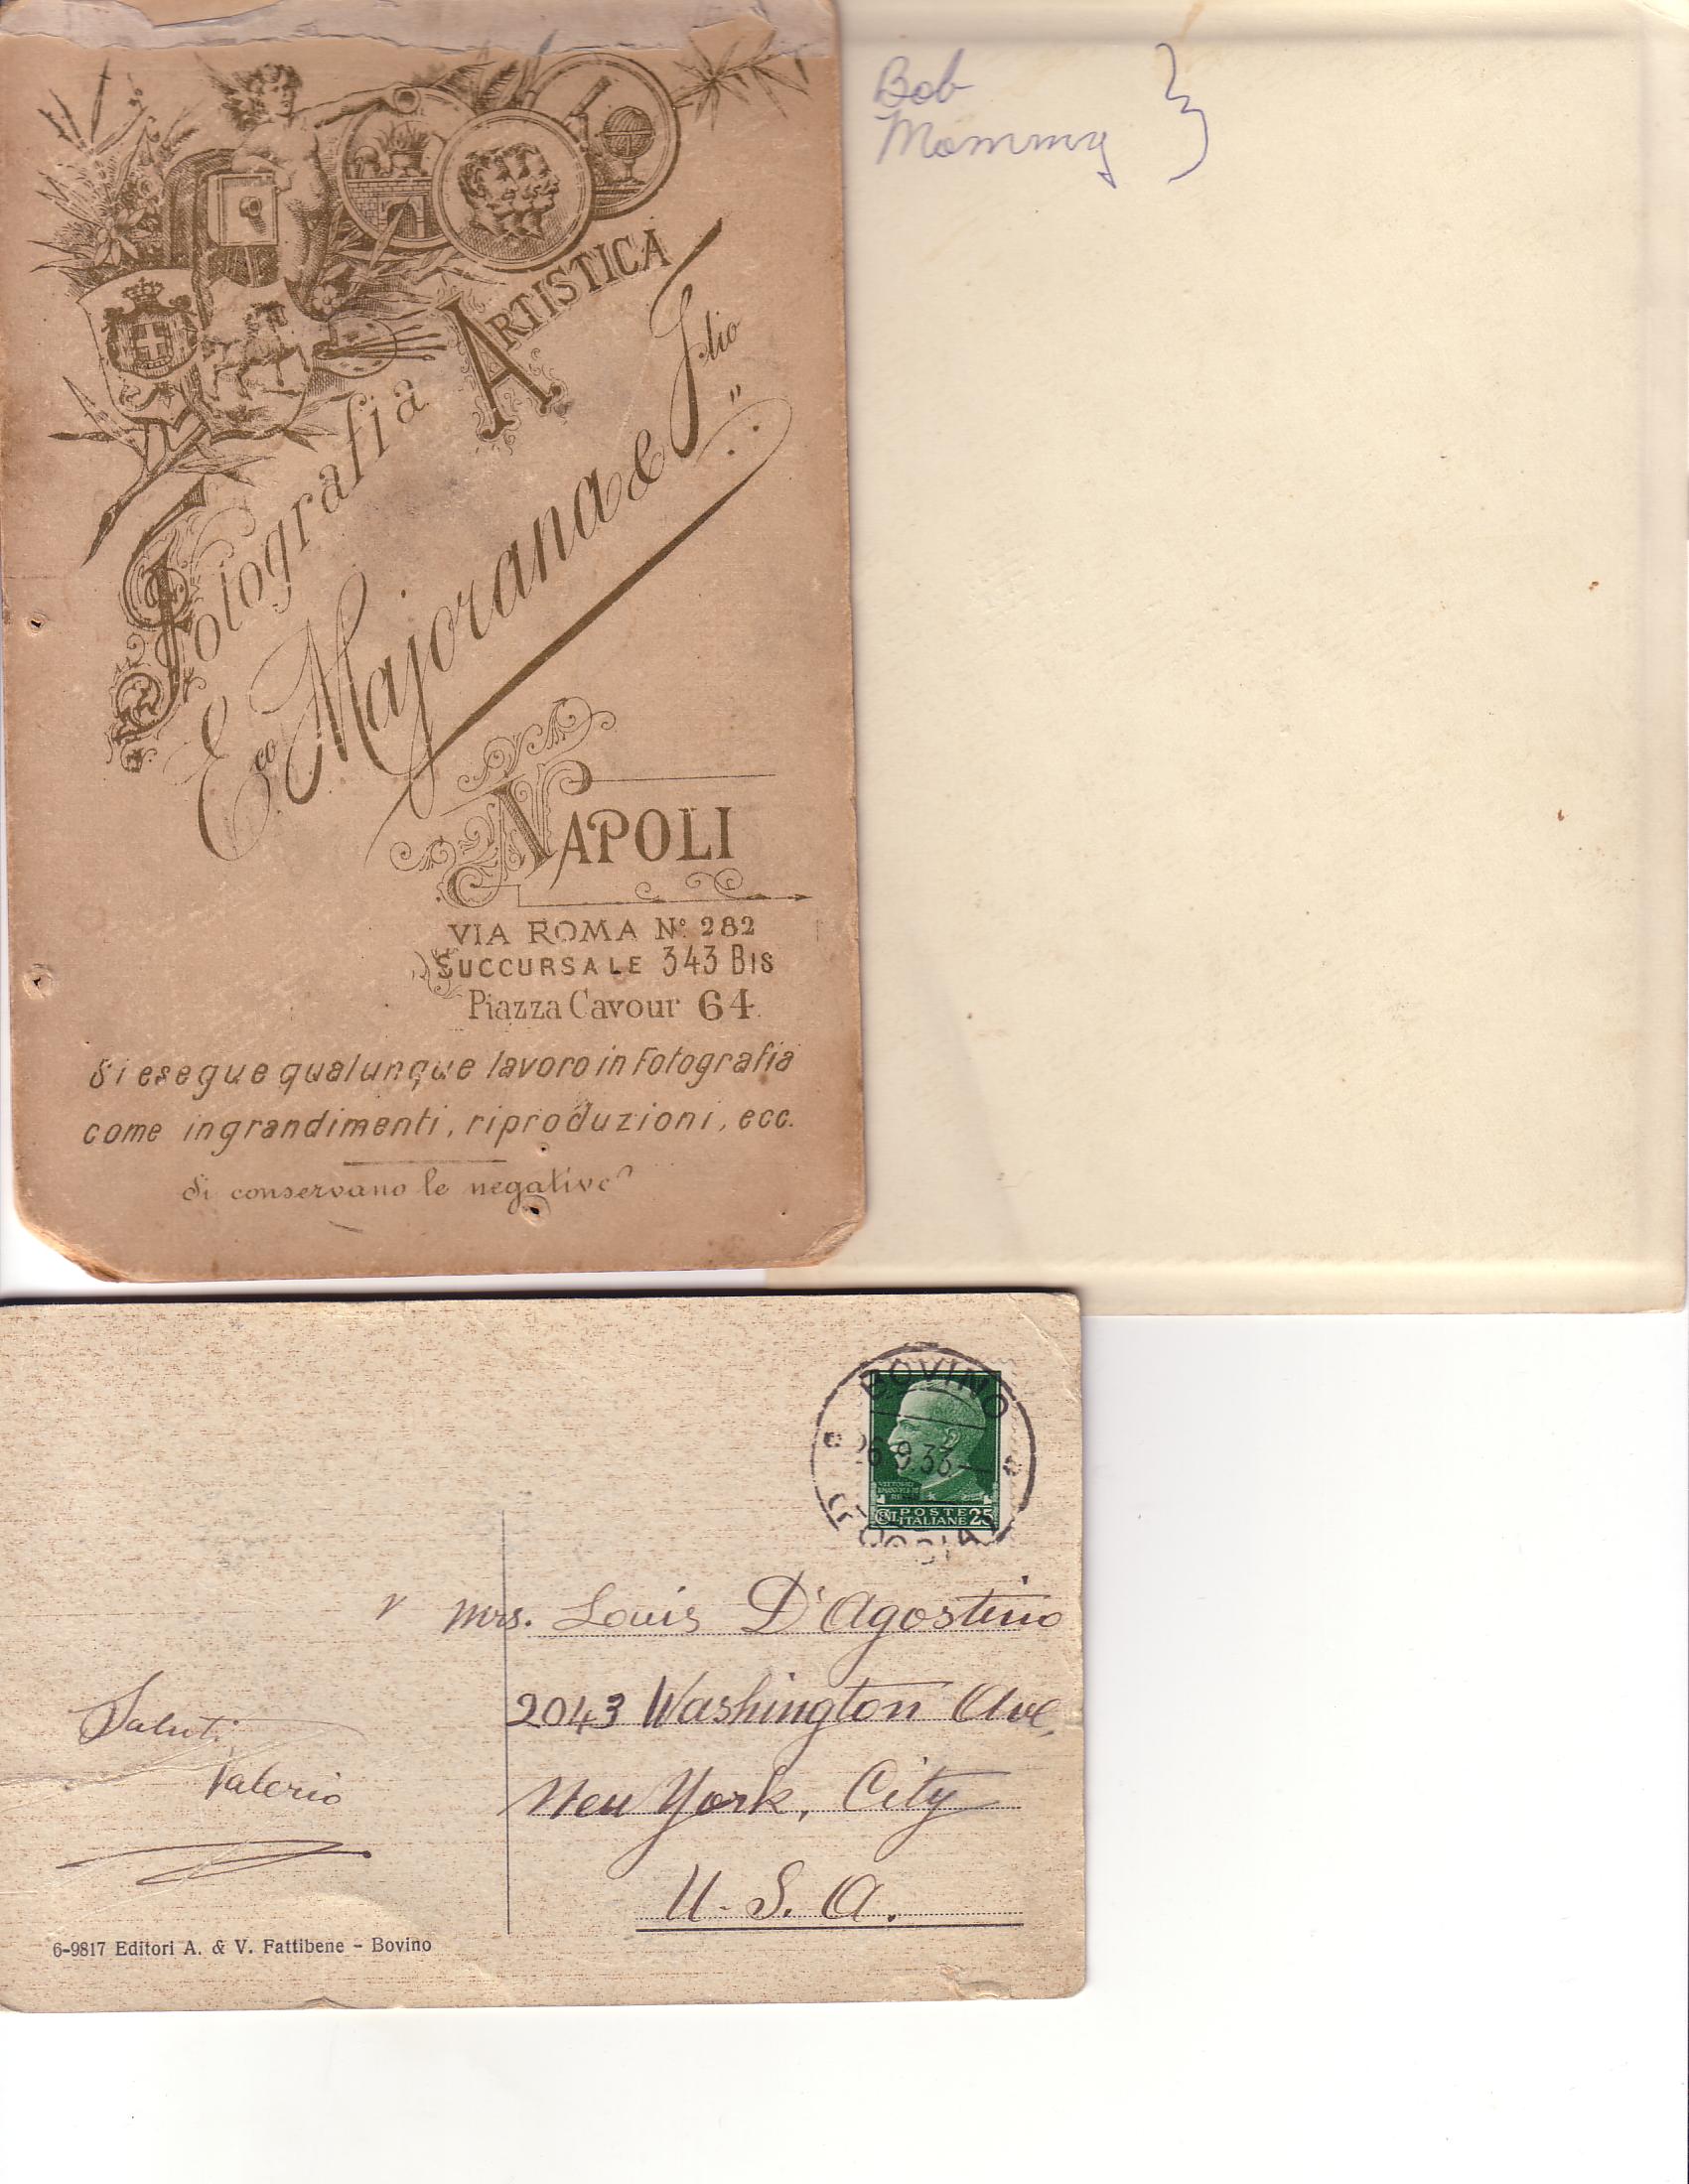 Fotografia ARTISTICA
E.co Majorana & F.lio
NAPOLI
VIA ROMA No. 282
SUCCURSALE 343 BIS
Piazza Cavour 64.
Si esegue qualunque lavoro in Fotografia
come ingrandimenti, riproduzioni, ecc.
Si conservano le negative
Bob
Mommy
BOVINO
26.9.33
POSTE
ITALIANE 25
Mrs. Louis D'Agostino
2043 Washington Ave,
New York, City
U. S. A.
Saluti
Valerio
6-9817 Editori A. & V. Fattibene - Bovino